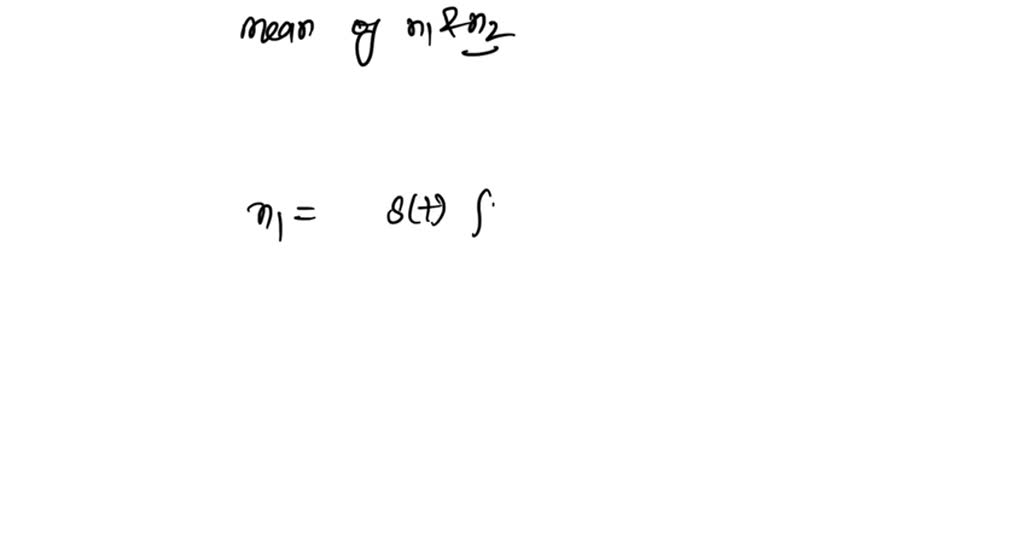 mean of n1 & n2
n1 = s(t) ∫